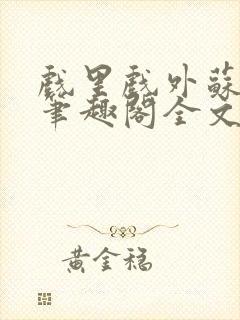 戲里戲外蘇
筆趣閣全文
黃金福